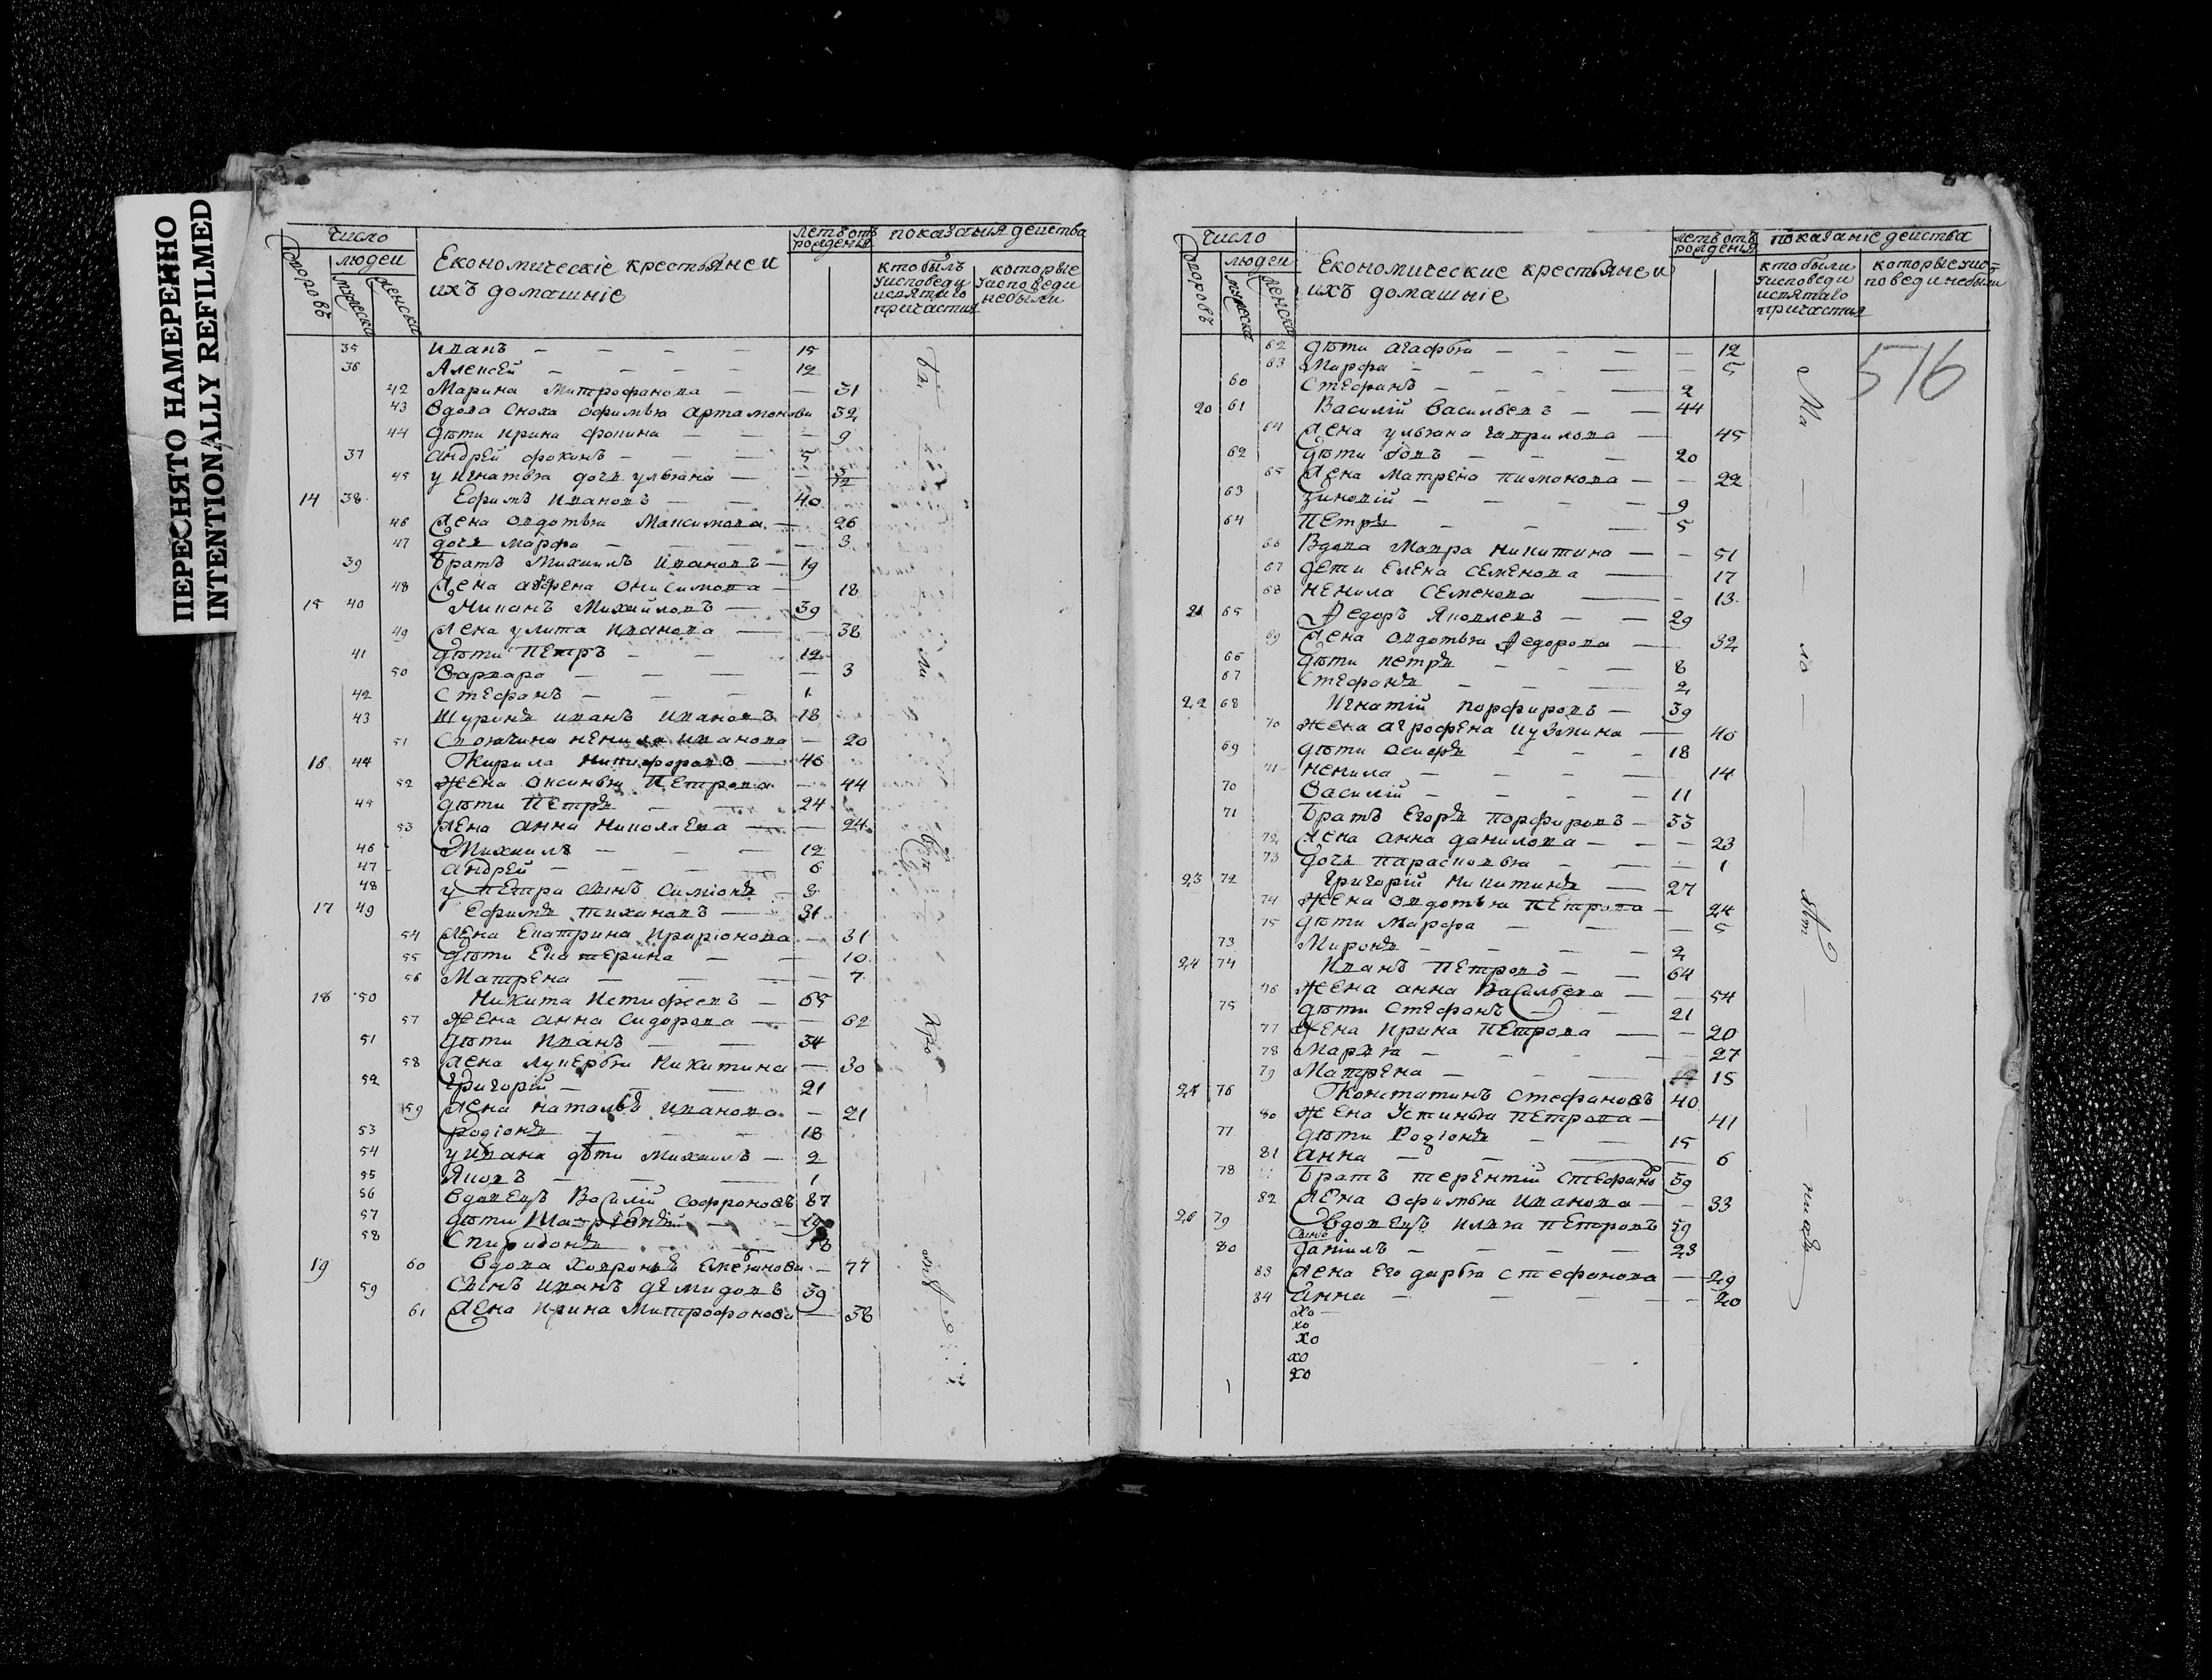 ПЕРЕСНЯТО НАМЕРЕННО
INTENTIONALLY REFILMED
число
людеи
дворовъ
мужеска
женска
Економическіе крестьяне и
ихъ домашніе
летъ отъ
рожденья
показания действа
кто былъ
у исповеди
и святаго
причастия
которые
у исповеди
небыли
35 иванъ — — — 15
36 Алексей — — — 12
42 Марина Митрофанова — — 31
43 вдова сноха офимья артамонова 32
44 дѣти ирина фокина — — — 9
37 андрей фокинъ — — — 5
45 у игнатья дочь ульяна — — 12
14 38 Ефимъ Ивановъ — — 40
46 жена овдотья Максимова — 26
47 дочь марфа — — — 3
39 братъ Михаилъ Ивановъ — 19
48 жена онисимова — 18
15 40 Михайловъ — 39
49 жена улита Иванова — 38
41 дѣти Петръ — — 12
50 варвара — — — — 3
42 Стефанъ — — — 1
43 шуринъ иванъ ивановъ 18
51 ненила иванова — 20
16 44 Кирила Никифоровъ — 46
52 жена оксинья Петрова — 44
45 дѣти Петръ — — 24
53 жена анна николаева — — 24
46 Михаилъ — — — 12
47 андрей — — — — 6
48 у петра сынъ симіонъ — 3
17 49 Ефимъ тихановъ — 31
54 жена Екатрина Иларіонова — 31
55 дѣти Екатерина — — 10
56 Матрена — — — — 7
18 50 Никита — 65
57 жена анна сидорова — — 62
51 дѣти Иванъ — — 34
58 жена лукерья Никитина — 30
52 григорій — — — 21
59 жена наталья Иванова — 21
53 родіонъ — — — 18
54 у ивана дѣти михаилъ — 2
55 Яковъ — — — 1
56 вдовецъ василій софроновъ 87
57 дѣти — — 19
58 Спиридонъ — 18
19 60 вдова — 77
59 сынъ иванъ демидовъ 39
61 жена ирина Митрофанова — 38
число
людеи
дворовъ
мужеска
женска
Економические крестьяне и
ихъ домашніе
летъ отъ
рожденья
показаніе действа
кто были
у исповеди
и святаго
причастия
которые у ис=
поведи небыли
516
62 дѣти агафья — — — — 12
63 Марфа — — — — — 5
60 Стефанъ — — — — 2
20 61 Василій васильевъ — — 44
64 жена ульяна гаврилова — 45
62 дѣти — — — 20
65 жена матрена пимонова — — 22
63 зиновій — — — — 9
64 Петръ — — — 5
66 вдова мавра никитина — — 51
67 дети елена семенова — 17
68 ненила семенова — 13
21 65 Федоръ Яковлевъ — — 29
69 жена овдотья Федорова — 32
66 дѣти петръ — — — 8
67 Стефанъ — — — 2
22 68 Игнатій порфировъ — 39
70 жена агрофена кузмина — 40
69 дѣти осифъ — — — 18
71 ненила — — — — 14
70 василий — — — — 11
71 братъ Егоръ порфировъ — 33
72 жена анна данилова — — — 23
73 дочь парасковья — — — 1
23 72 григорій никитинъ — 27
74 жена овдотья петрова — 24
75 дѣти марфа — — — 5
73 Миронъ — — — — 2
24 74 Иванъ Петровъ — — 64
76 жена анна васильева — — 54
75 дѣти стефанъ — — 21
77 жена ирина Петрова — — 20
78 марья — — — — — 27
79 Матрена — — — 15
25 76 Констатинъ стефановъ 40
80 жена устинья петрова — 41
77 дѣти Родіонъ — — 15
81 анна — — — — 6
78 братъ терентій 39
82 жена офимья иванова — — 33
26 79 вдовецъ илья петровъ 59
сынъ
80 даніилъ — — — — 23
83 жена его дарья стефанова — 29
84 анна — — — — — 20
хо —
хо
хо
хо
хо